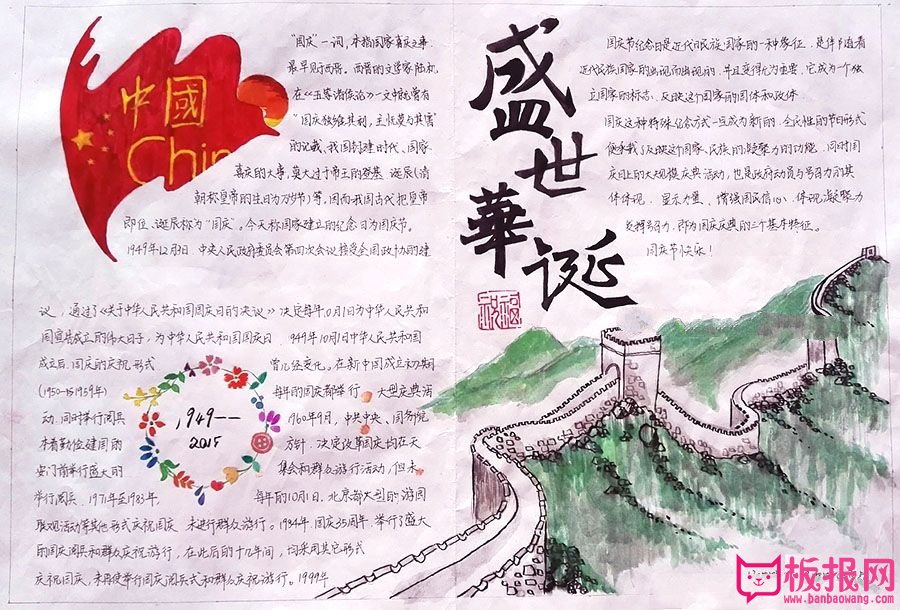 中國
Chin
"国庆"一词,本指国家喜庆之事
最早见于西晋。西晋的文学家陆机
在《五等诸侯论》一文中就曾有
"国庆独飨其利,主忧莫与其害"
的记载、我国封建时代、国家
喜庆的大事,莫大过于帝王的登基、诞辰(清
朝称皇帝的生日为万岁节)等,因而我国古代把皇帝
即位、诞辰称为"国庆"。今天称国家建立的纪念日为国庆节。
1949年12月3日,中央人民政府委员会第四次会议接受全国政协的建
议,通过了《关于中华人民共和国国庆日的决议》决定每年10月1日为中华人民共和
国宣告成立的伟大日子,为中华人民共和国国庆日 949年10月1日中华人民共和国
成立后,国庆的庆祝形式 曾几经变化。在新中国成立初期
(1950-1959年) 每年的国庆都举行 大型庆典活
动,同时举行阅兵 1960年9月,中共中央、国务院
本着勤俭建国的 方针,决定改革国庆 在天
安门前举行盛大的 集会和群众游行活动,但未
举行阅兵、1971年至1983年, 每年的10月1日,北京都大型的游园
联欢活动等其他形式庆祝国庆,未进行群众游行。1984年,国庆35周年,举行了盛大
的国庆阅兵和群众庆祝游行,在此后的十几年间,均采用其它形式
庆祝国庆,未再使举行国庆阅兵式和群众庆祝游行。1999年
1949——
2015
盛世
華诞
国庆节纪念日是近代民族国家的一种象征,是伴随着
近代民族国家的出现而出现的,并且变得尤为重要,它成为一个独
立国家的标志,反映这个国家的国体和政体
国庆这种特殊纪念方式一旦成为新的、全民性的节日形式
便承载了反映这个国家、民族的凝聚力的功能,同时国
庆日上的大规模庆典活动,也是政府动员与号召力的具
体体现,显示力量、增强国民信心,体现凝聚力
发挥号召力,即为国庆庆典的三个基本特征。
国庆节快乐!
板报网
www.banbaowang.com